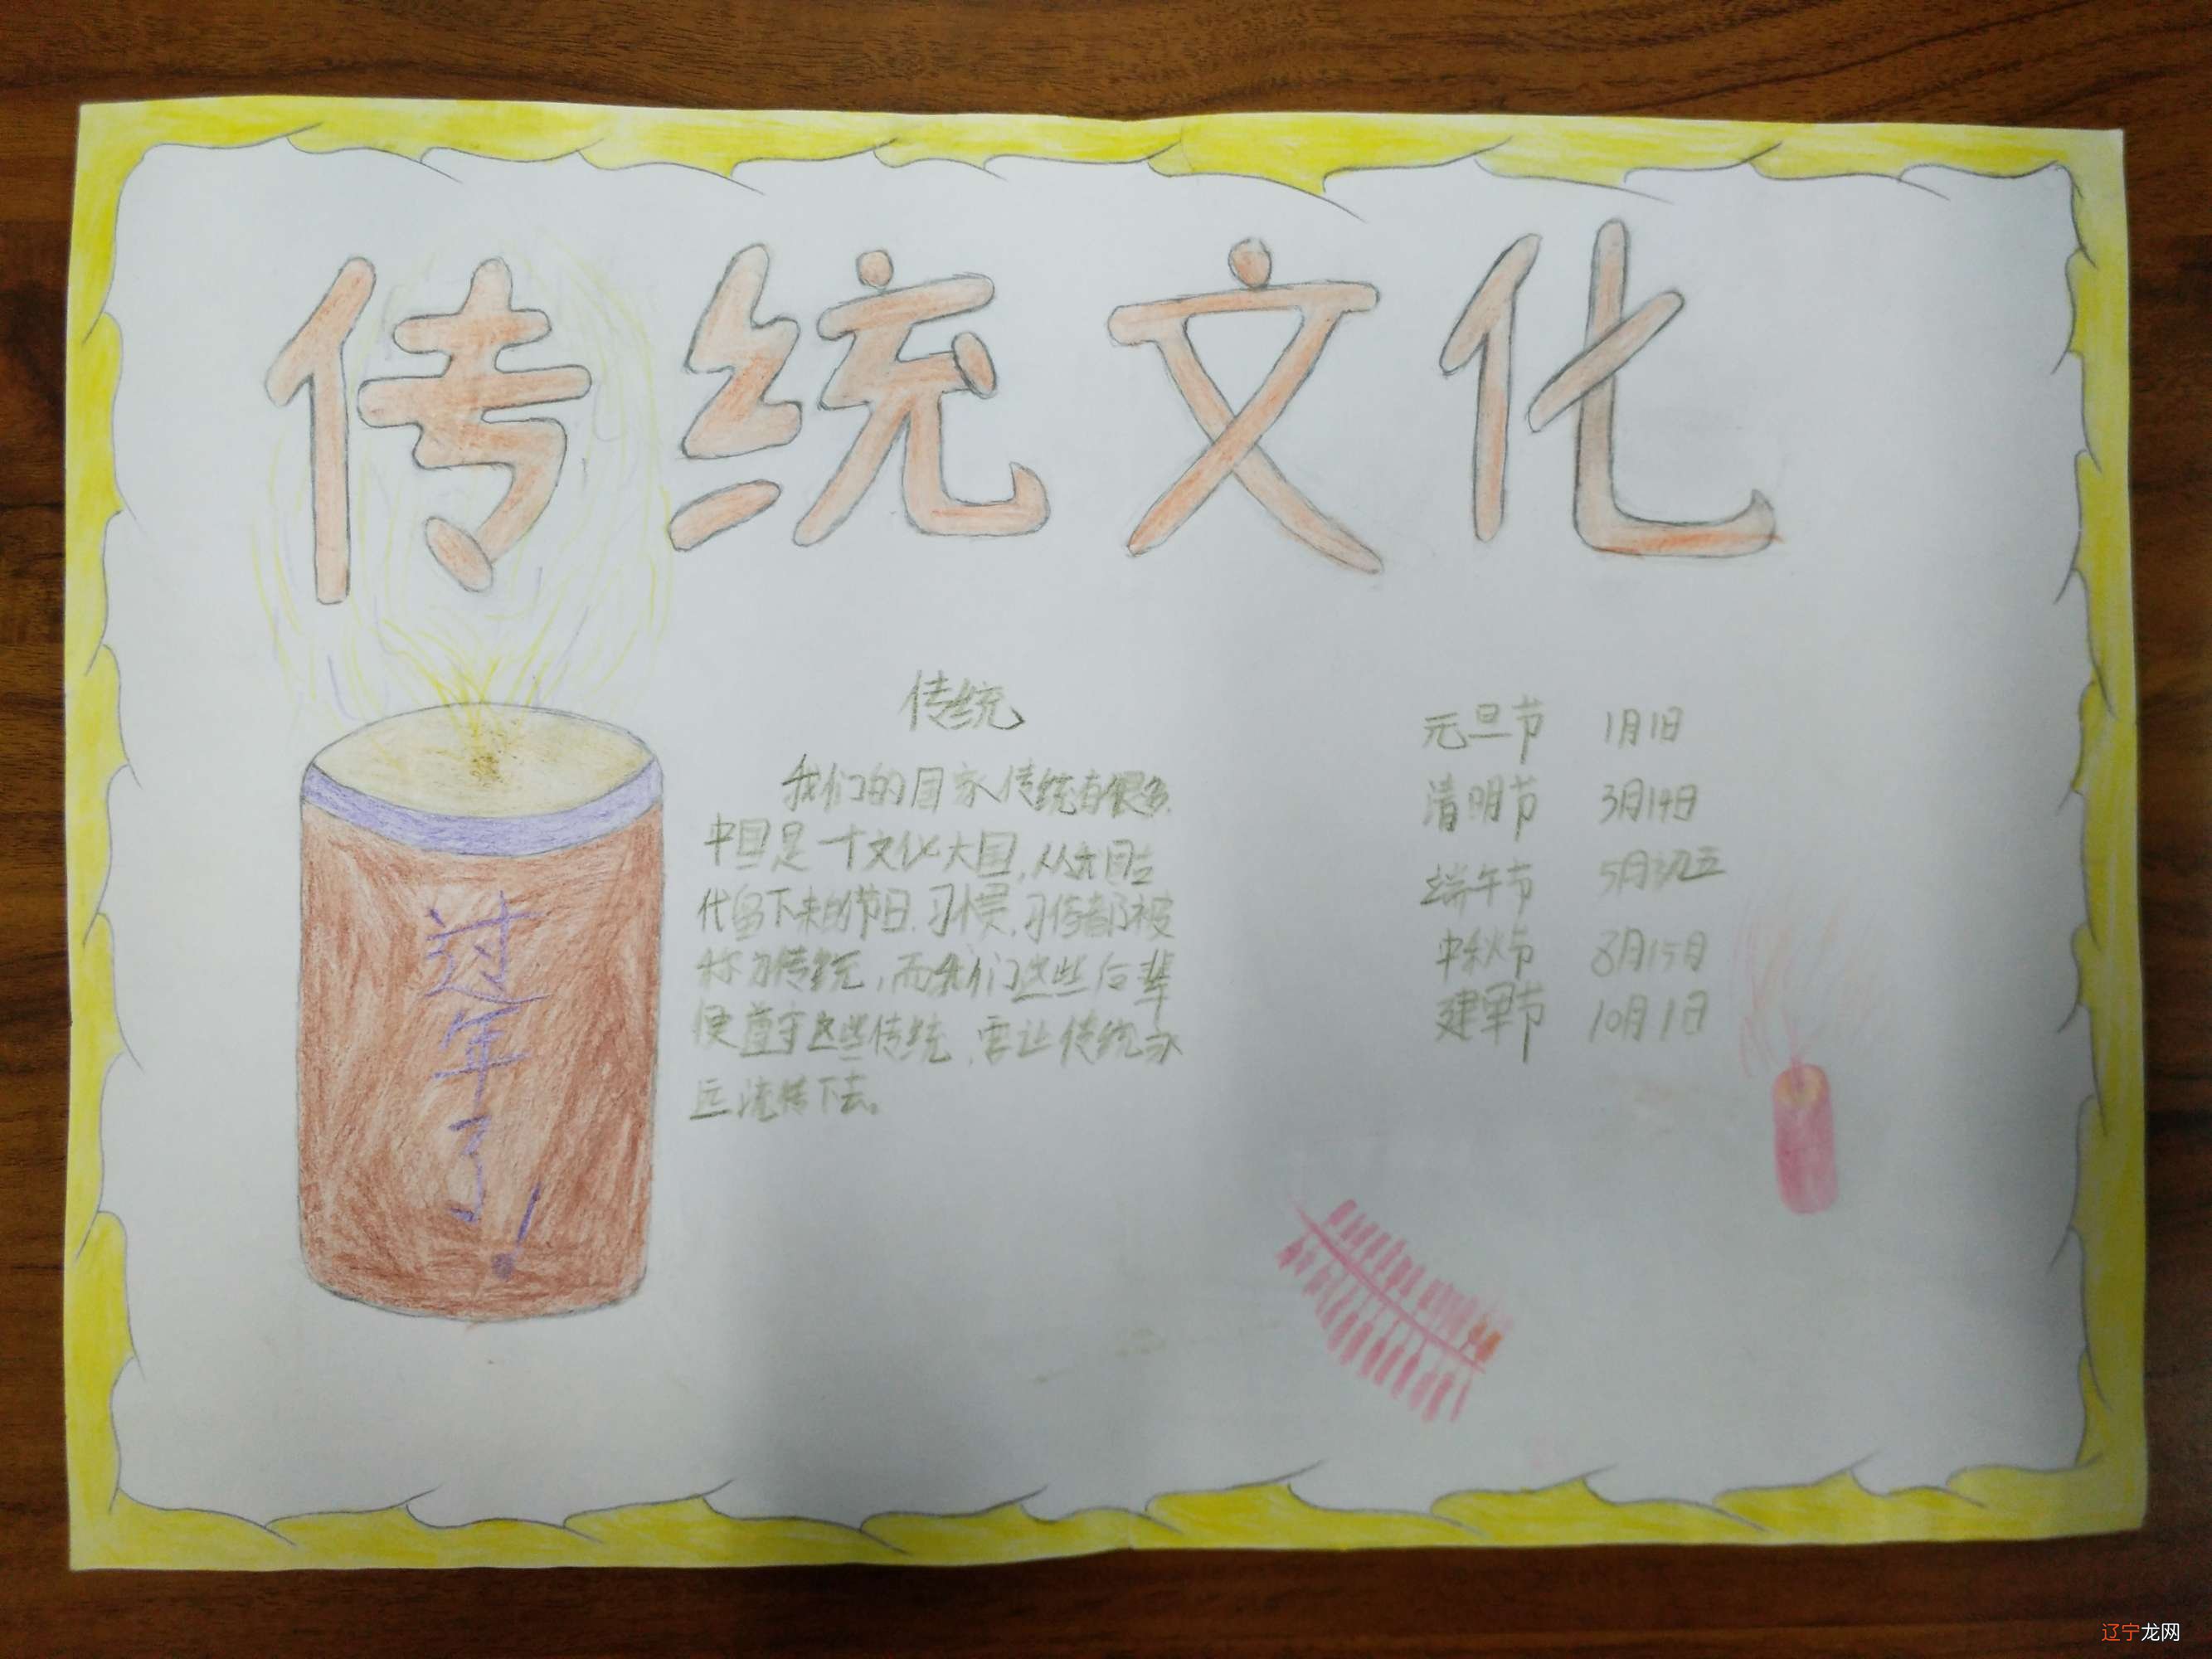 传统文化
过年了!
传统
我们的国家传统有很多.
中国是一个文化大国,从古
代留下来的节日.习惯.习俗都被
称为传统,而我们这些后辈
便遵守这些传统.要让传统永
远流传下去。
元旦节 1月1日
清明节 3月14日
端午节 5月初五
中秋节 8月15日
建军节 10月1日
辽宁龙网